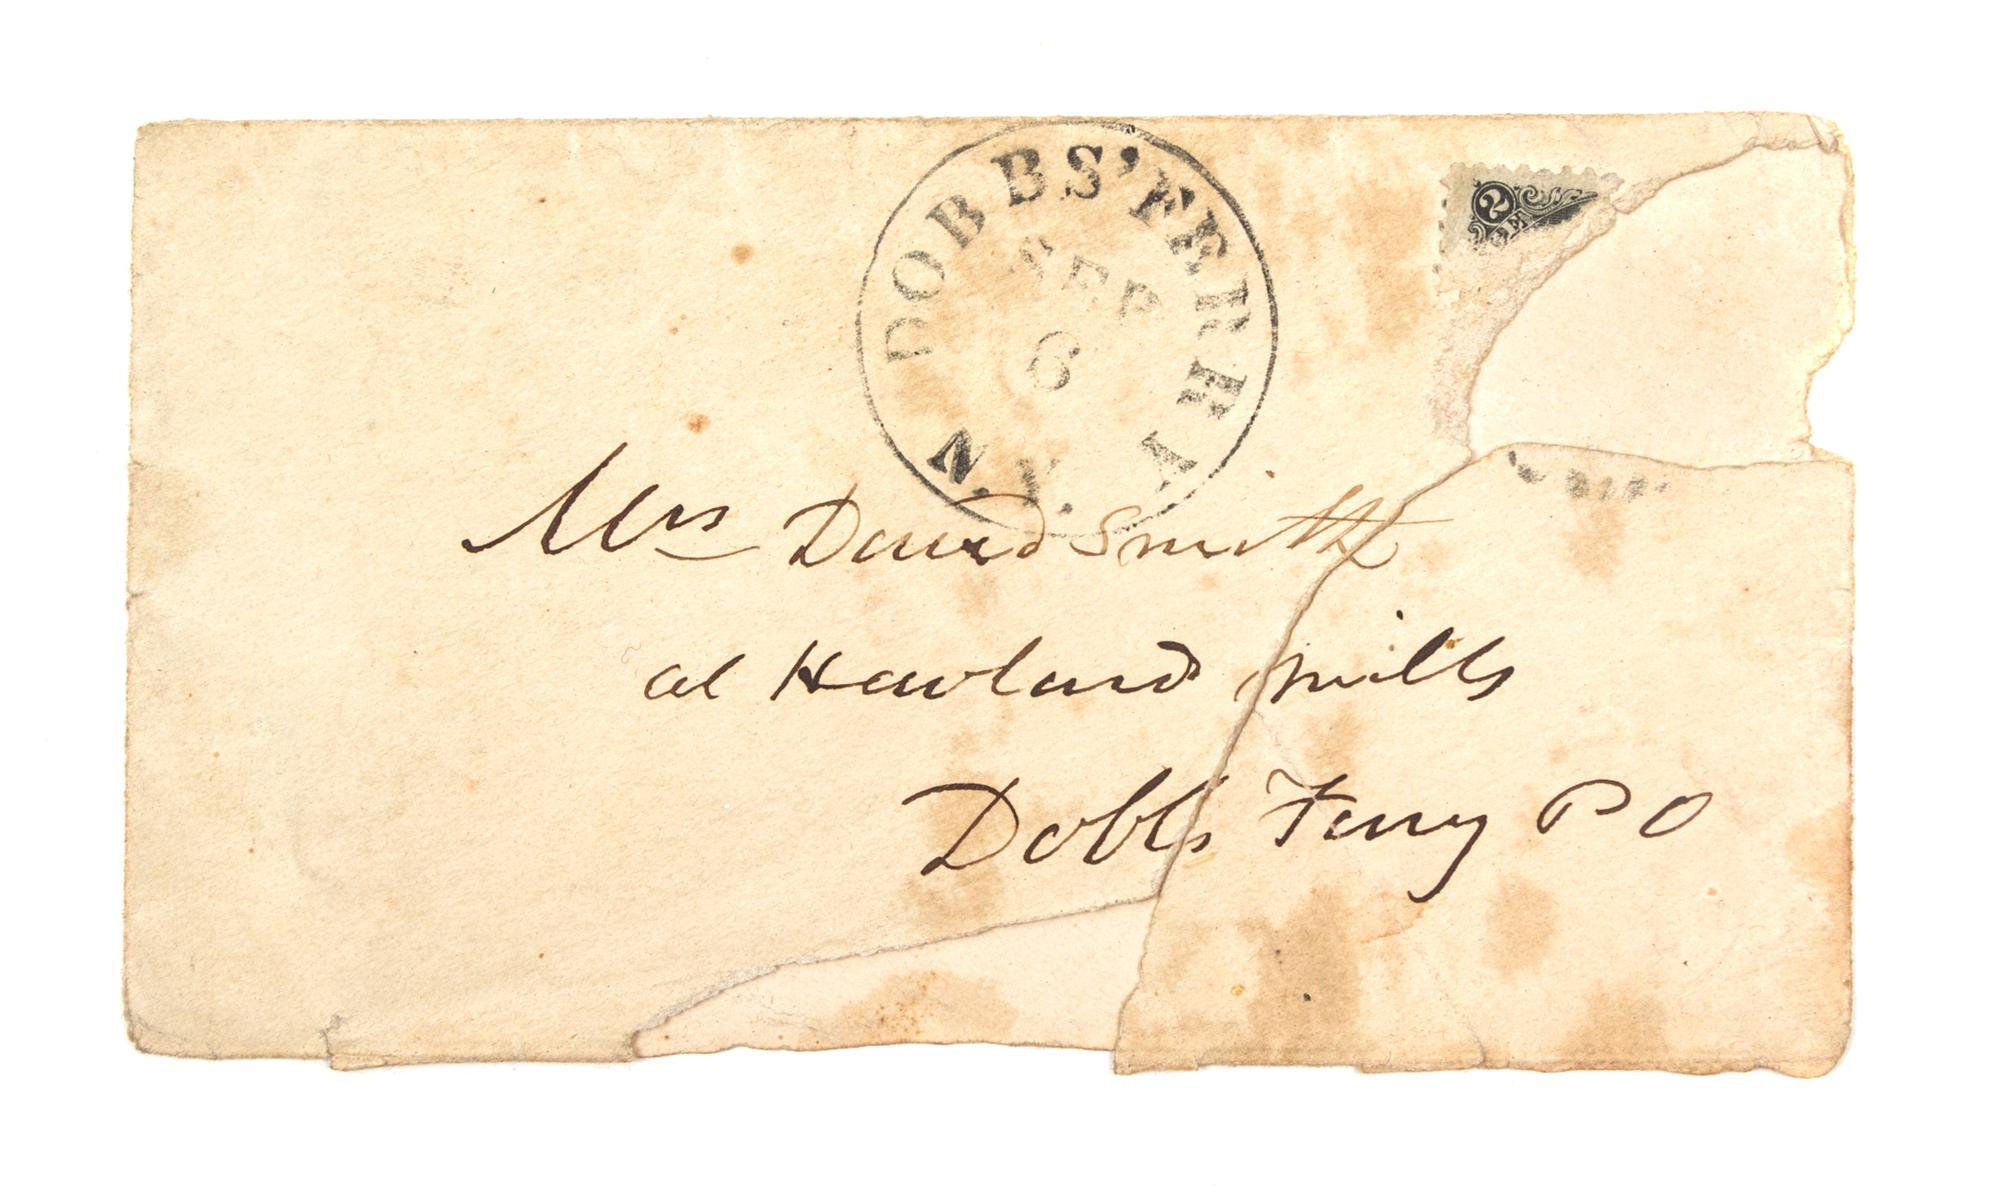 DOBBS' FERRY
SEP
6
N.Y.
2
Mrs David Smith
at Haviland Mills
Dobbs Ferry PO